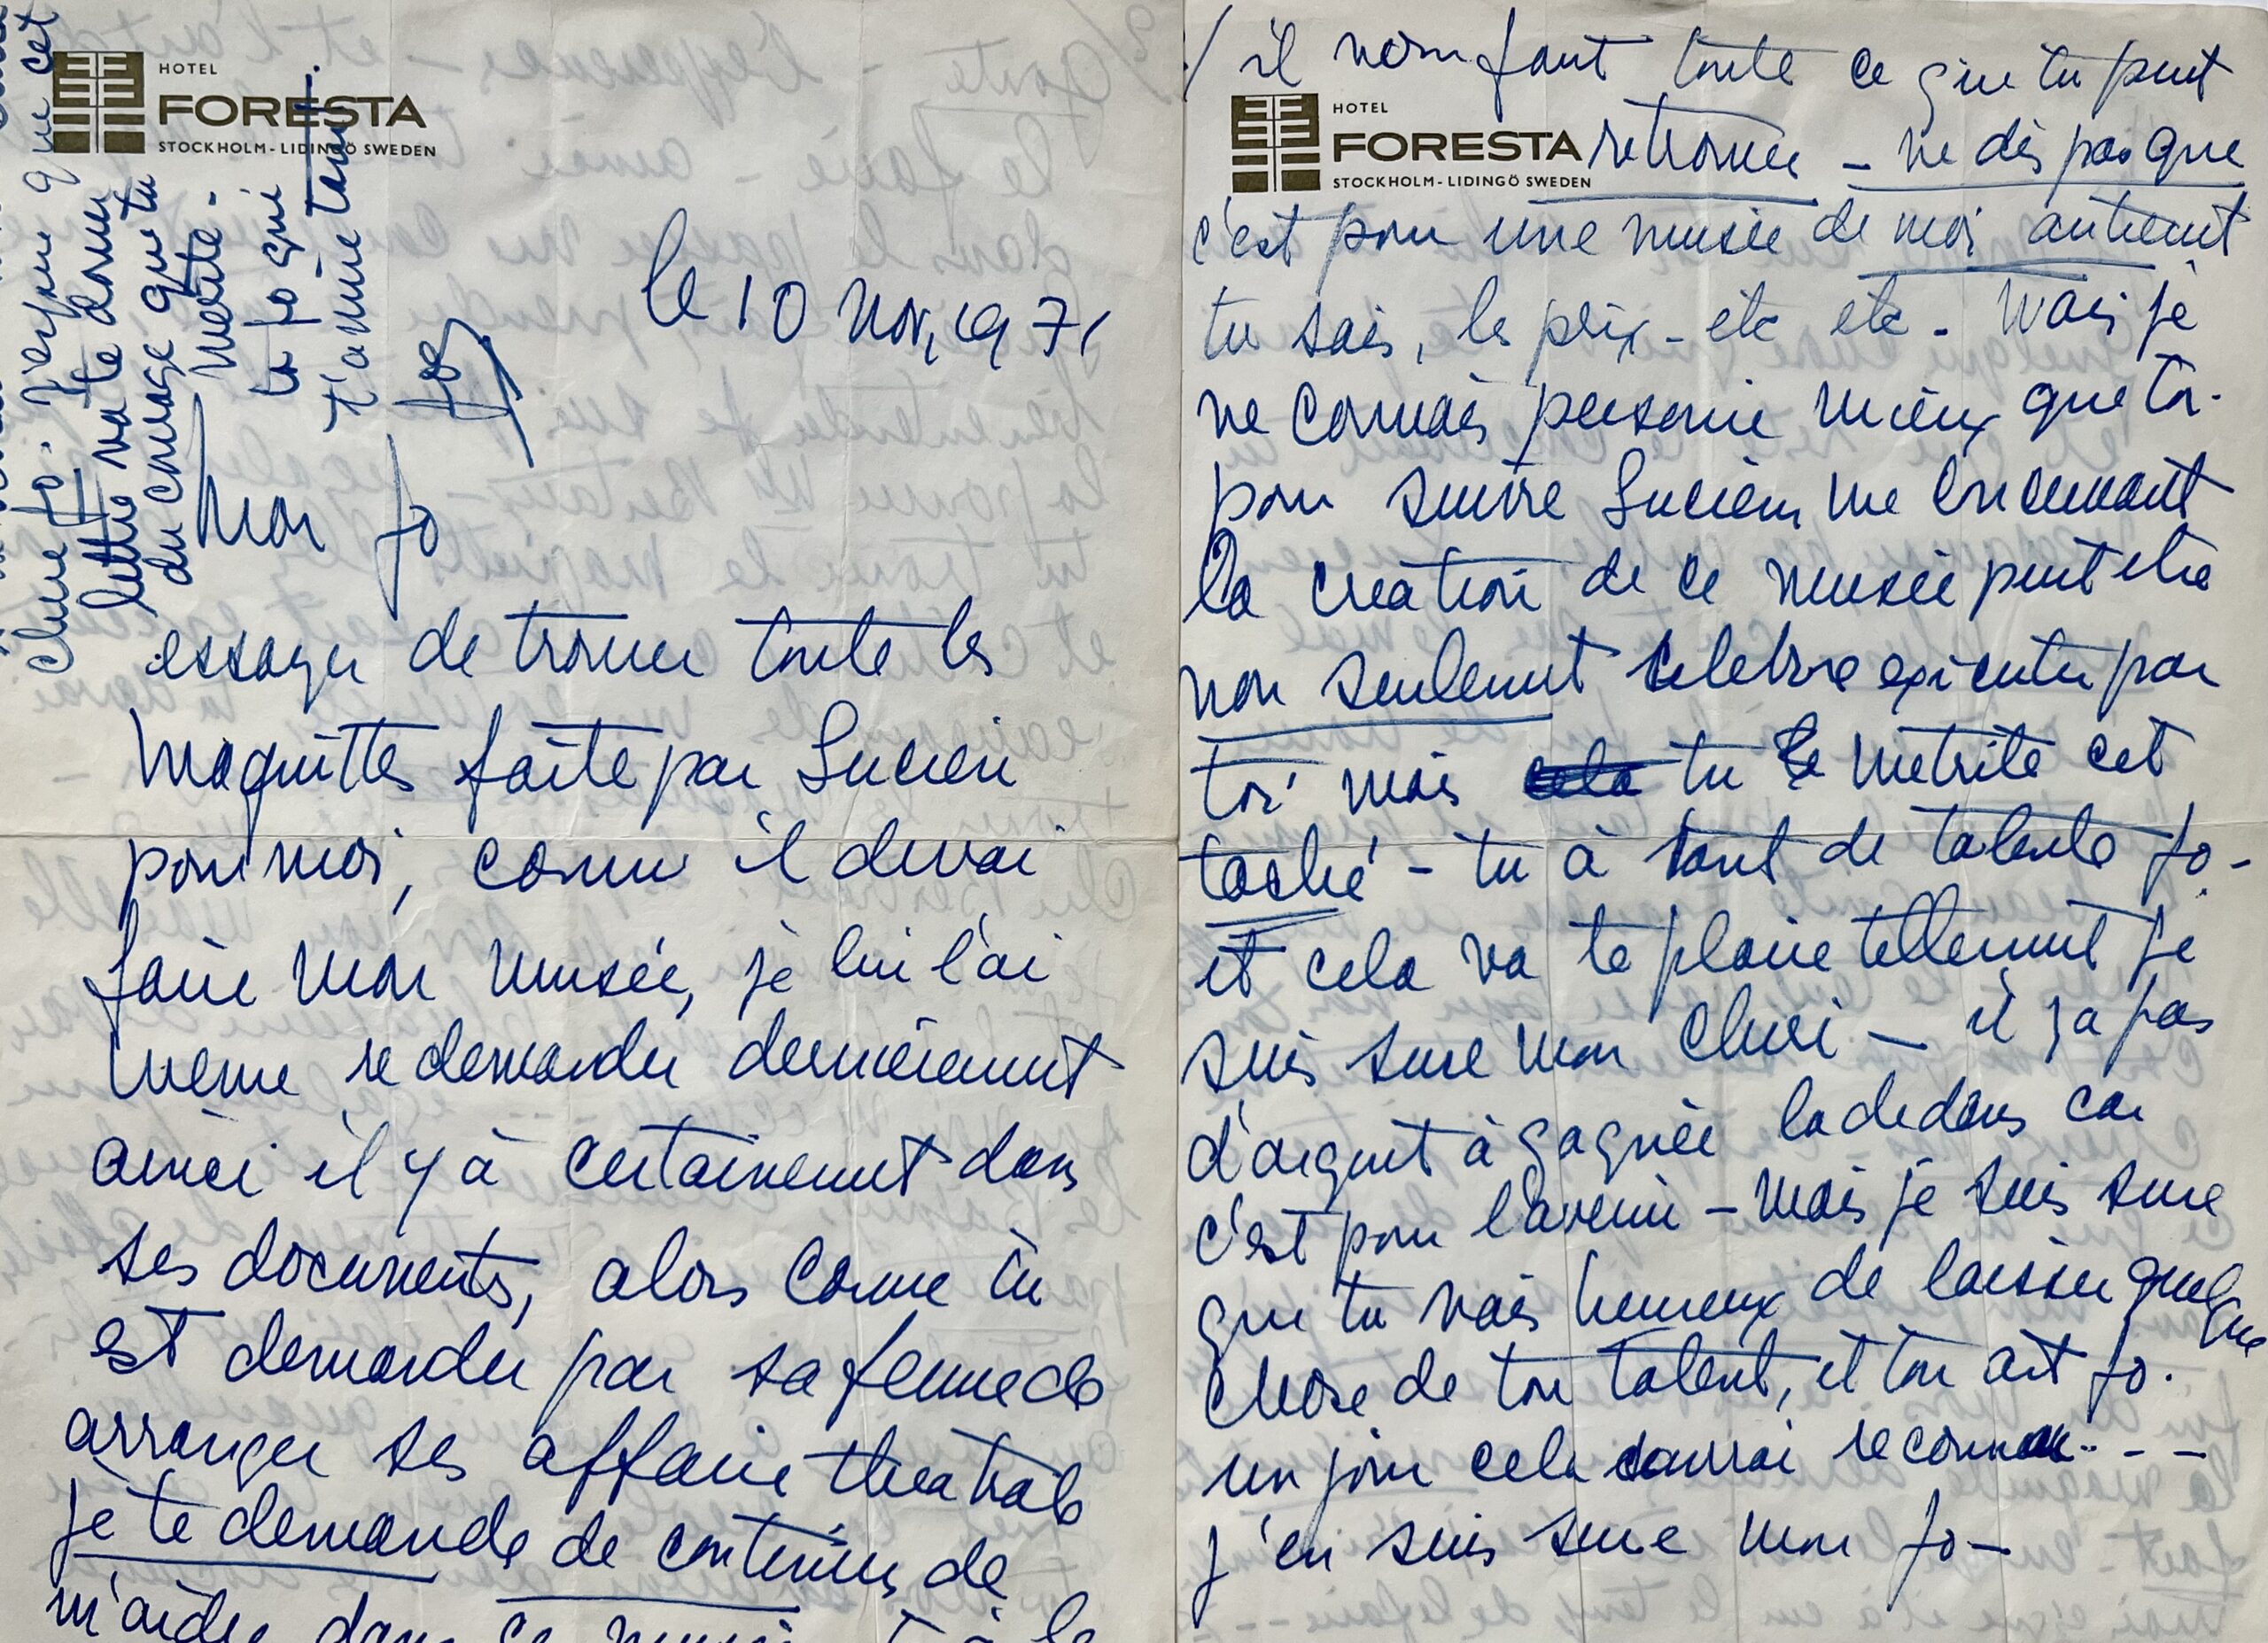 HOTEL
FORESTA
STOCKHOLM - LIDINGÖ SWEDEN
le 10 Nov, 1971
Mon Jo
essayer de trouver toute les
Maquettes faite par Lucien
pour moi, comme il devai
faire mon musée, je lui l'ai
même redemander dernièrement
ainsi il y à certainement dans
ses documents, alors comme tu
est demander par sa femme de
arranger ses affaire theatrale
je te demande de continuer de
m'aider dans ce
Cherie Jo. J'espere que cet
lettre va te donner
du courage que tu
merite -
ta Jo qui
t'aime tant.
Joy
il nous faut toute ce que tu peut
HOTEL
FORESTA
STOCKHOLM - LIDINGÖ SWEDEN
retrouver - ne dis pas que
c'est pour une musée de moi autrement
tu sais, les prix - etc etc - Mais je
ne connais personne mieux que toi.
pour suivre Lucien, me
La creation de ce musée peut etre
non seulement celebre executer par
toi mais cela tu le metrite cet
taché - tu à tant de talente Jo -
et cela va te plaire tellement je
suis sure mon cheri - il y a pas
d'argent à gagnée la dedans car
c'est pour l'avenir - mais je suis sure
que tu vais heureux de laisser quelque
chose de ton talent, et ton art Jo.
un jour cela saurai reconnu - - -
J'en suis sure mon Jo -